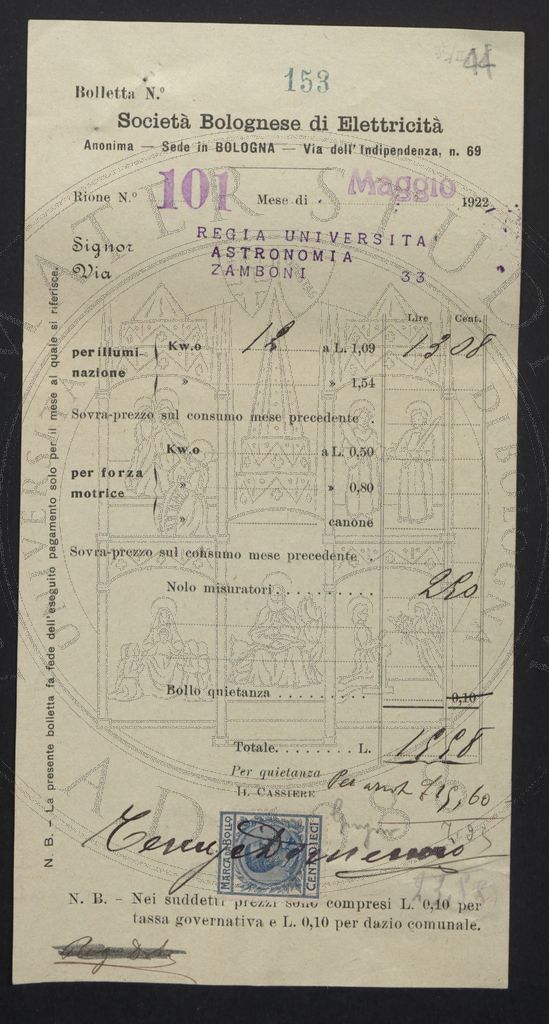 44
153
Bolletta N.º
Società Bolognese di Elettricità
Anonima — Sede in BOLOGNA — Via dell'Indipendenza, n. 69
Rione N.º 101 Mese di Maggio 1922
Signor REGIA UNIVERSITA'
ASTRONOMIA
Via ZAMBONI 33
Lire Cent.
per illumi- Kw.o 12 a L. 1,09 13 08
nazione » » 1,54
Sovra-prezzo sul consumo mese precedente .
Kw.o a L. 0,50
per forza » » 0,80
motrice » canone
Sovra-prezzo sul consumo mese precedente .
Nolo misuratori . . . . . . . . . . 2 50
Bollo quietanza . . . . . . . . . . 0,10
Totale . . . . . . . . L. 15 58
Per quietanza
IL CASSIERE Per 15,60
MARCA DA BOLLO
CENT. DIECI
N. B. - Nei suddetti prezzi sono compresi L. 0,10 per
tassa governativa e L. 0,10 per dazio comunale.
N. B. - La presente bolletta fa fede dell'eseguito pagamento solo per il mese al quale si riferisce.